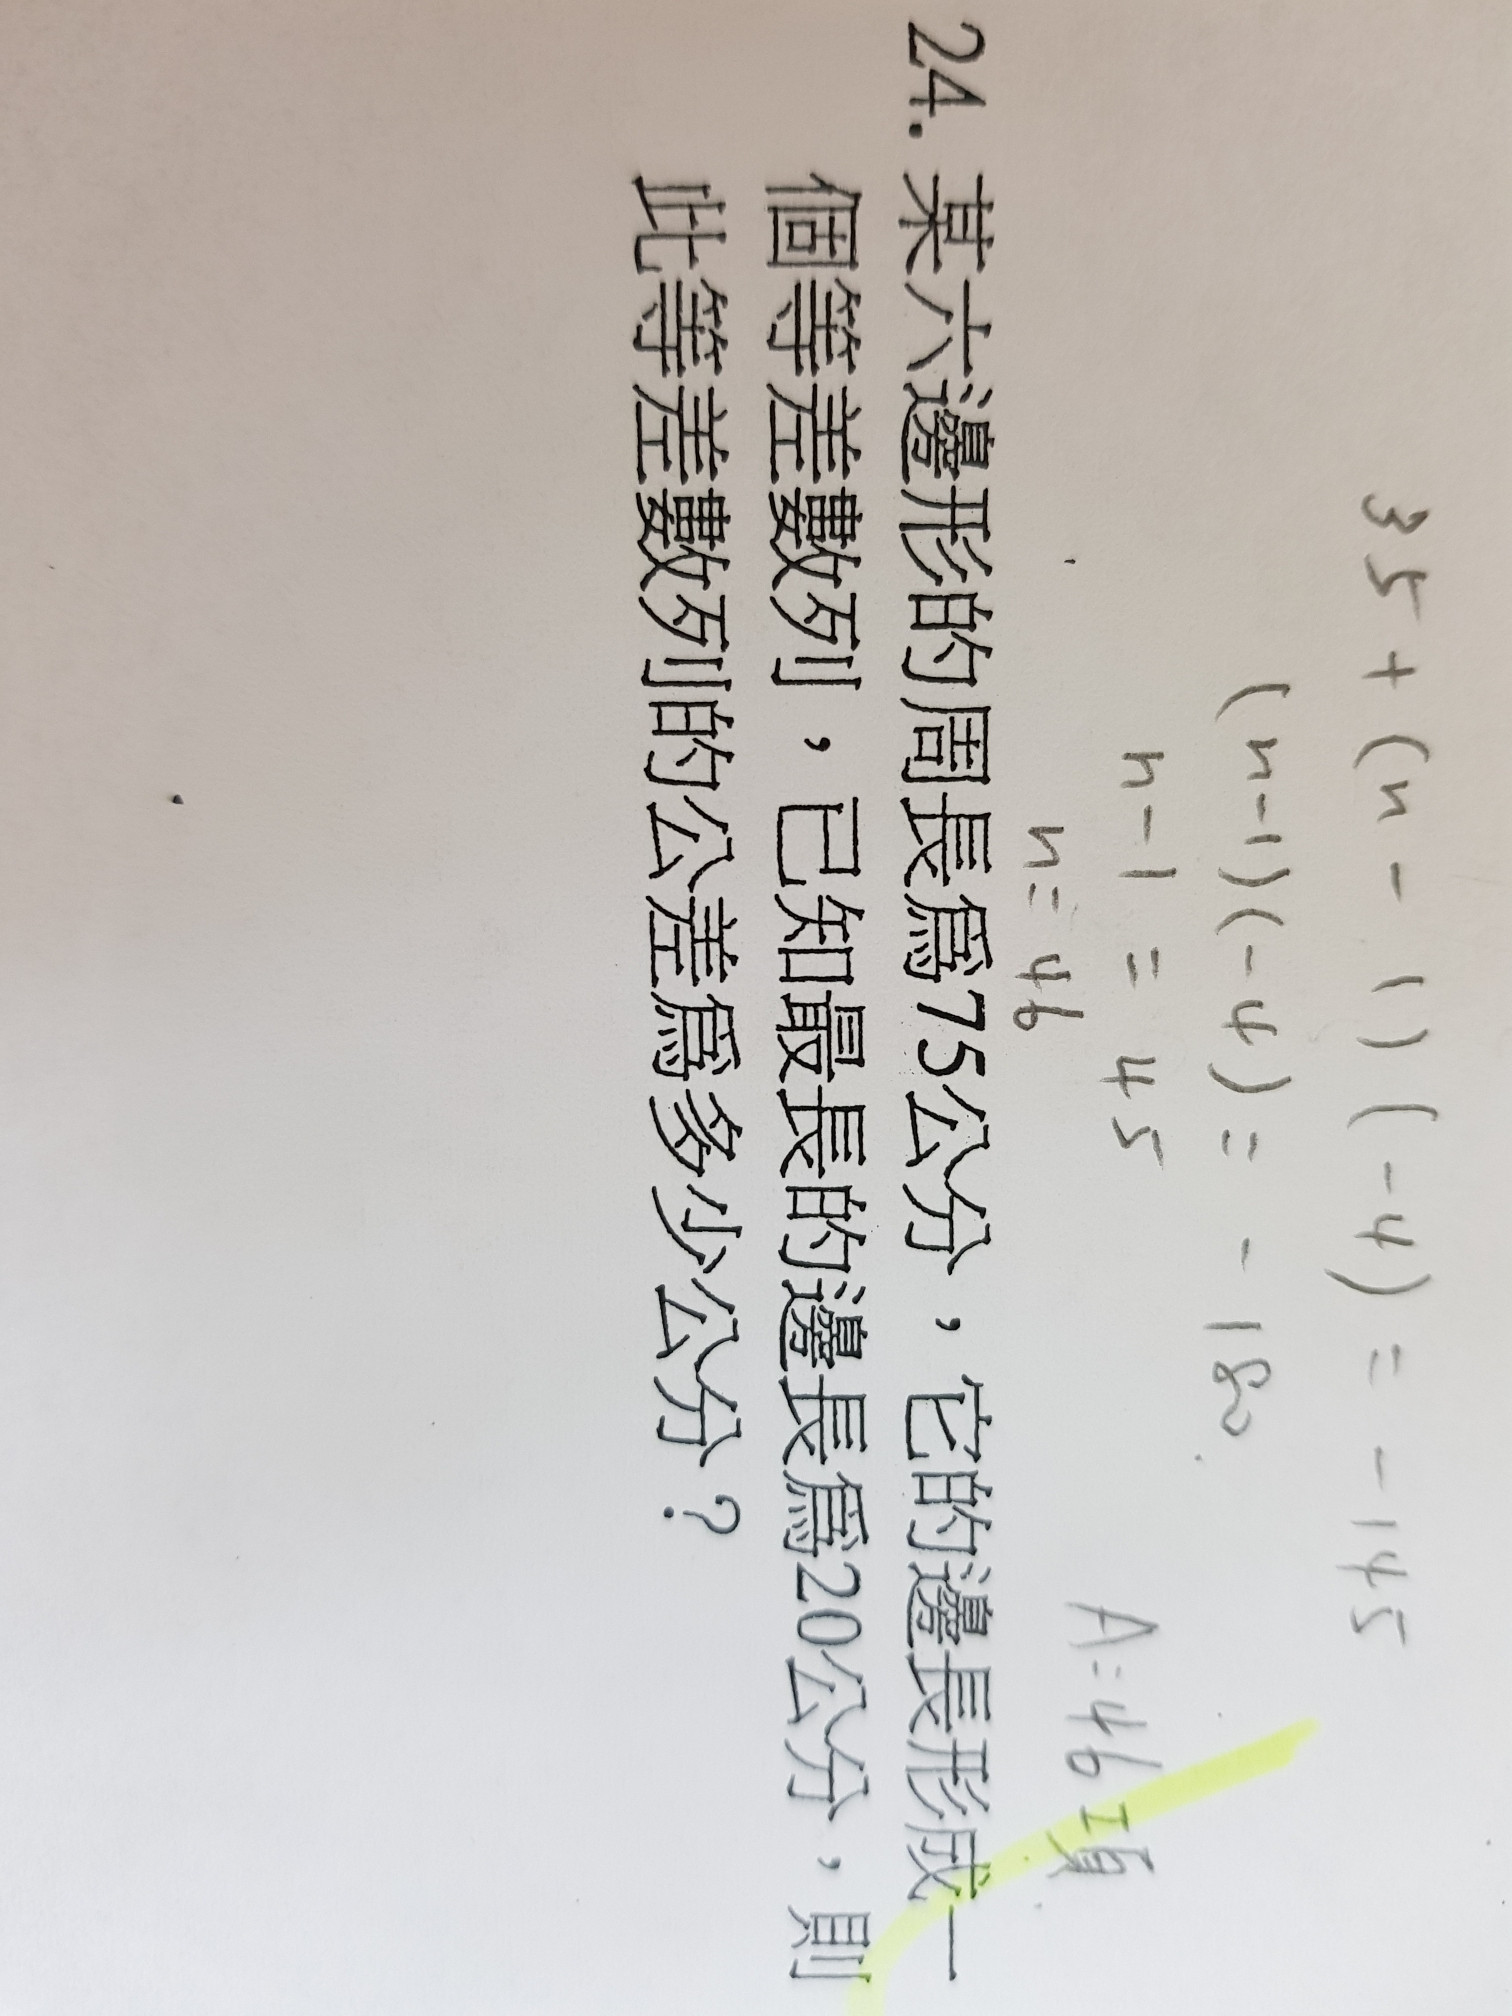 35+(n-1)(-4)=-145
(n-1)(-4)=-180
n-1=45
n=46
A:46項
24.某六邊形的周長為75公分，它的邊長形成一
個等差數列，已知最長的邊長為20公分，則
此等差數列的公差為多少公分？